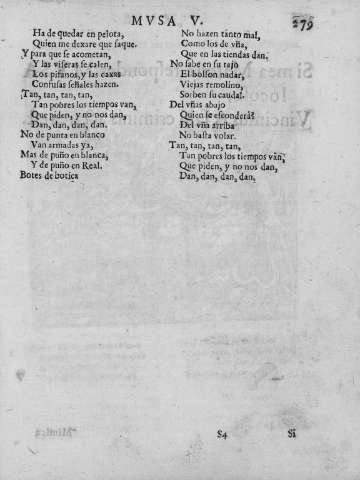 MVSA V. 279
Ha de quedar en pelota,
Quien me dexare que saque.
Y para que se acometan,
Y las viseras se calen,
Los pifanos, y las caxas
Confusas señales hazen.
Tan, tan, tan, tan,
Tan pobres los tiempos van,
Que piden, y no nos dan,
Dan, dan, dan, dan.
No de punta en blanco
Van armadas ya,
Mas de puño en blanca,
Y de puño en Real.
Botes de botica
No hazen tanto mal,
Como los de vña,
Que en las tiendas dan.
No sabe en su tajo
El bolson nadar,
Viejas remolino,
Sorben su caudal.
Del vñas abajo
Quien se esconderá?
Del vña arriba
No basta volar.
Tan, tan, tan, tan,
Tan pobres los tiempos van,
Que piden, y no nos dan,
Dan, dan, dan, dan.
S4 Si